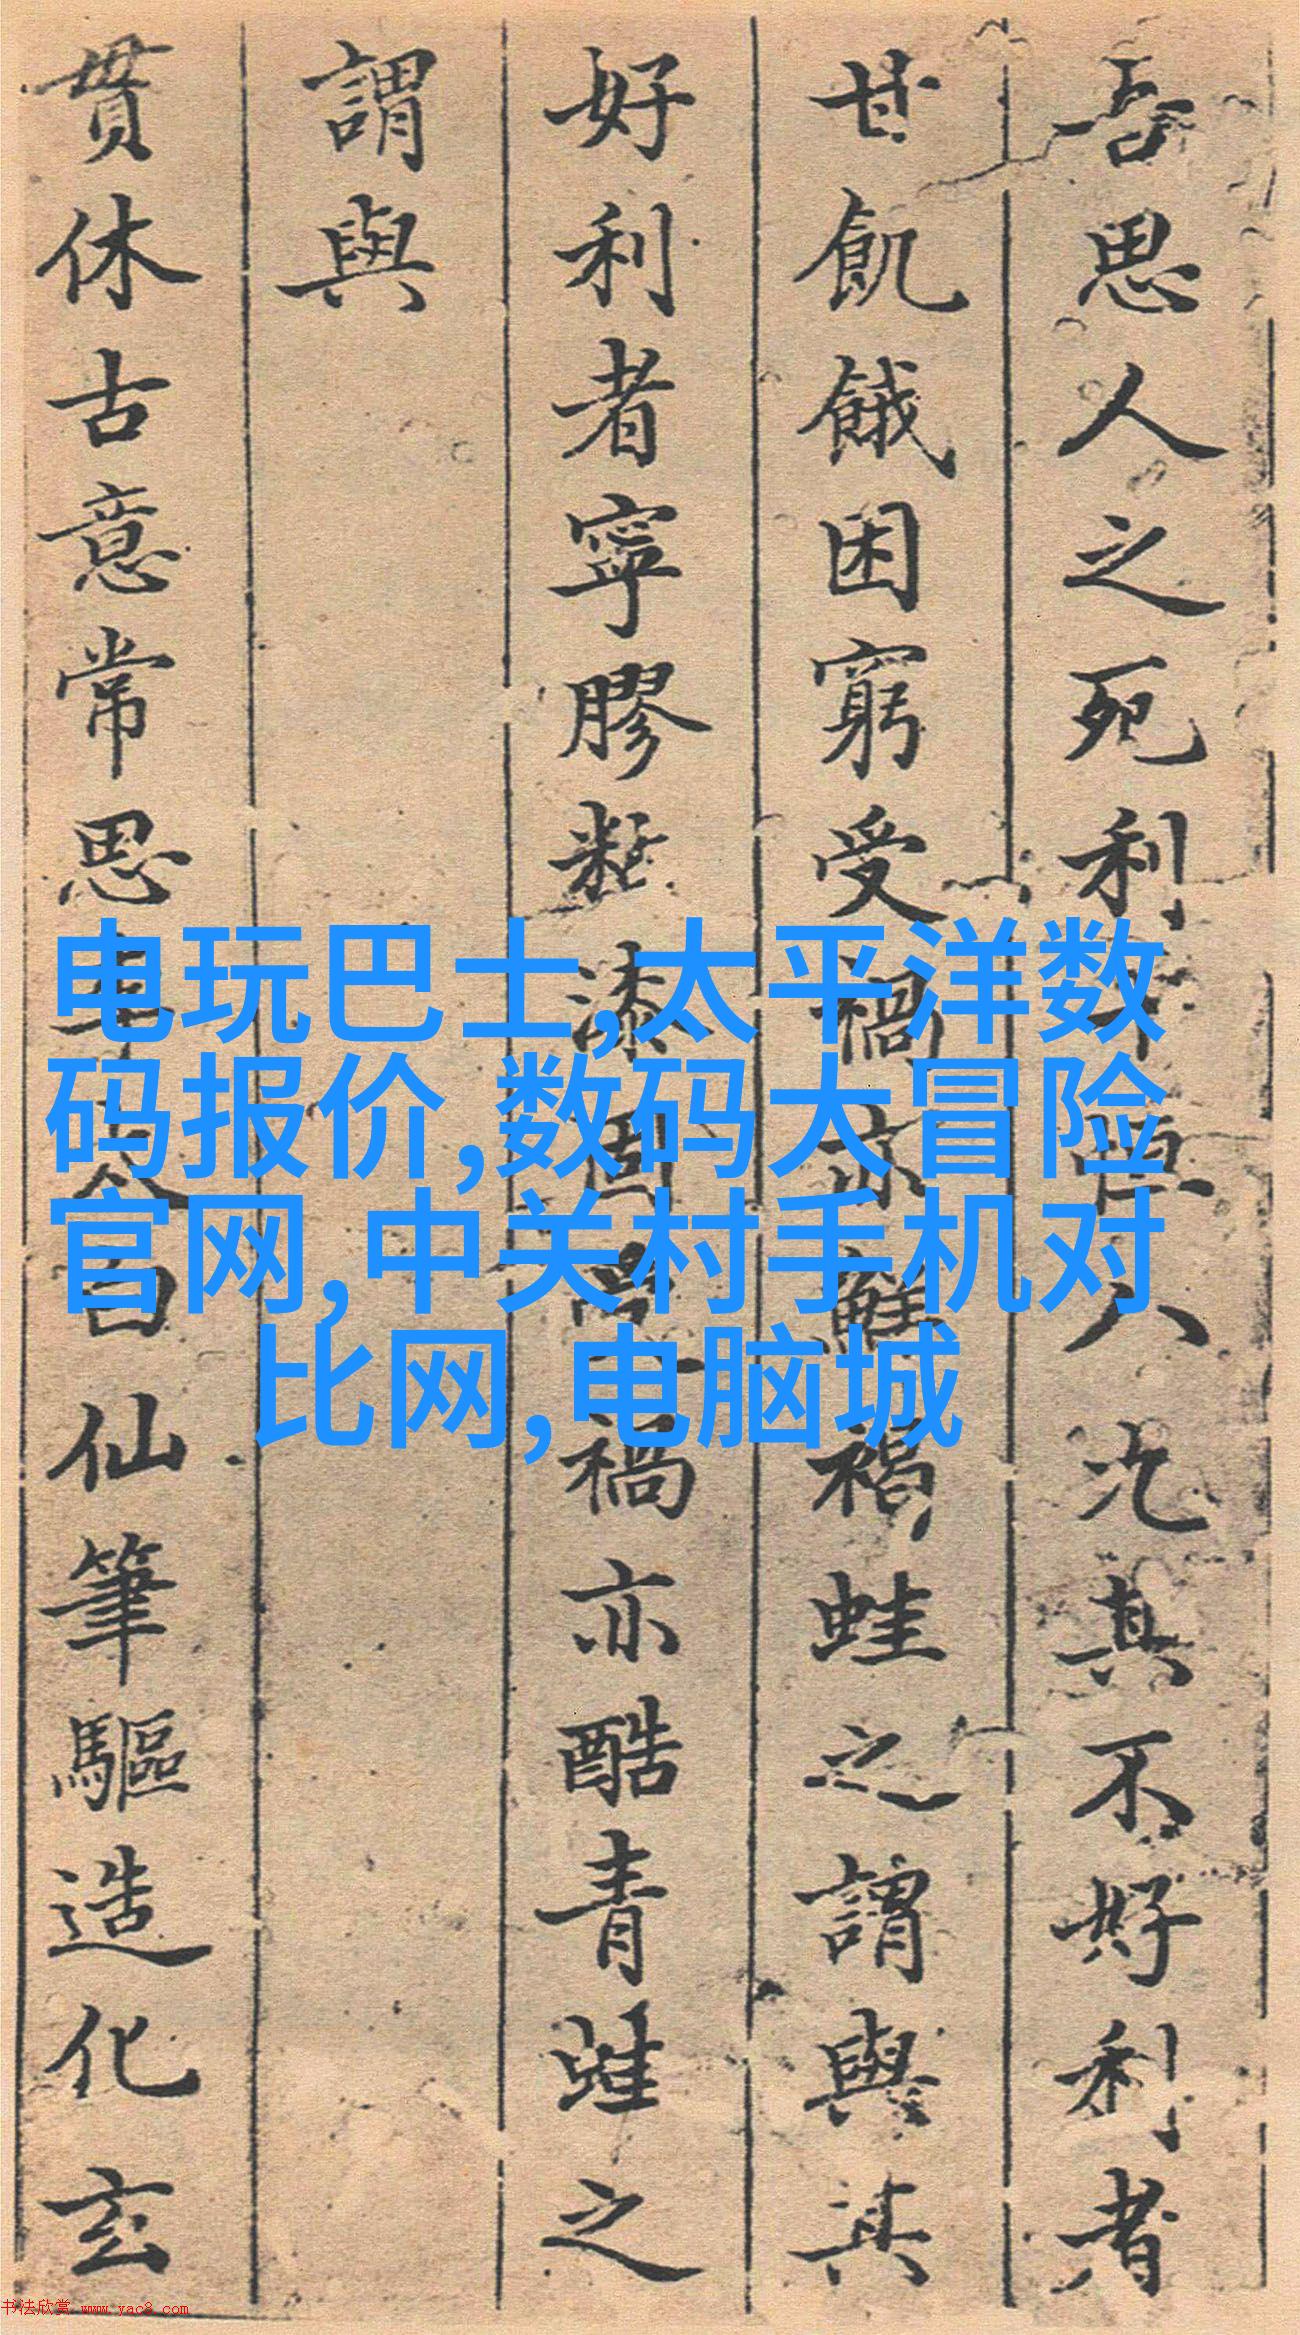 吾思人之死利 人 其不好利者
甘飢餓困窮受禍亦鮮褐蛙之謂與其
好利者寧膠 漆固 禍亦酷青蛙之
謂與
貫休古意常思李太白仙筆驅造化玄
电玩巴士,太平洋数
码报价,数码大冒险
官网,中关村手机对
比网,电脑城
书法欣赏 www.yac8.com